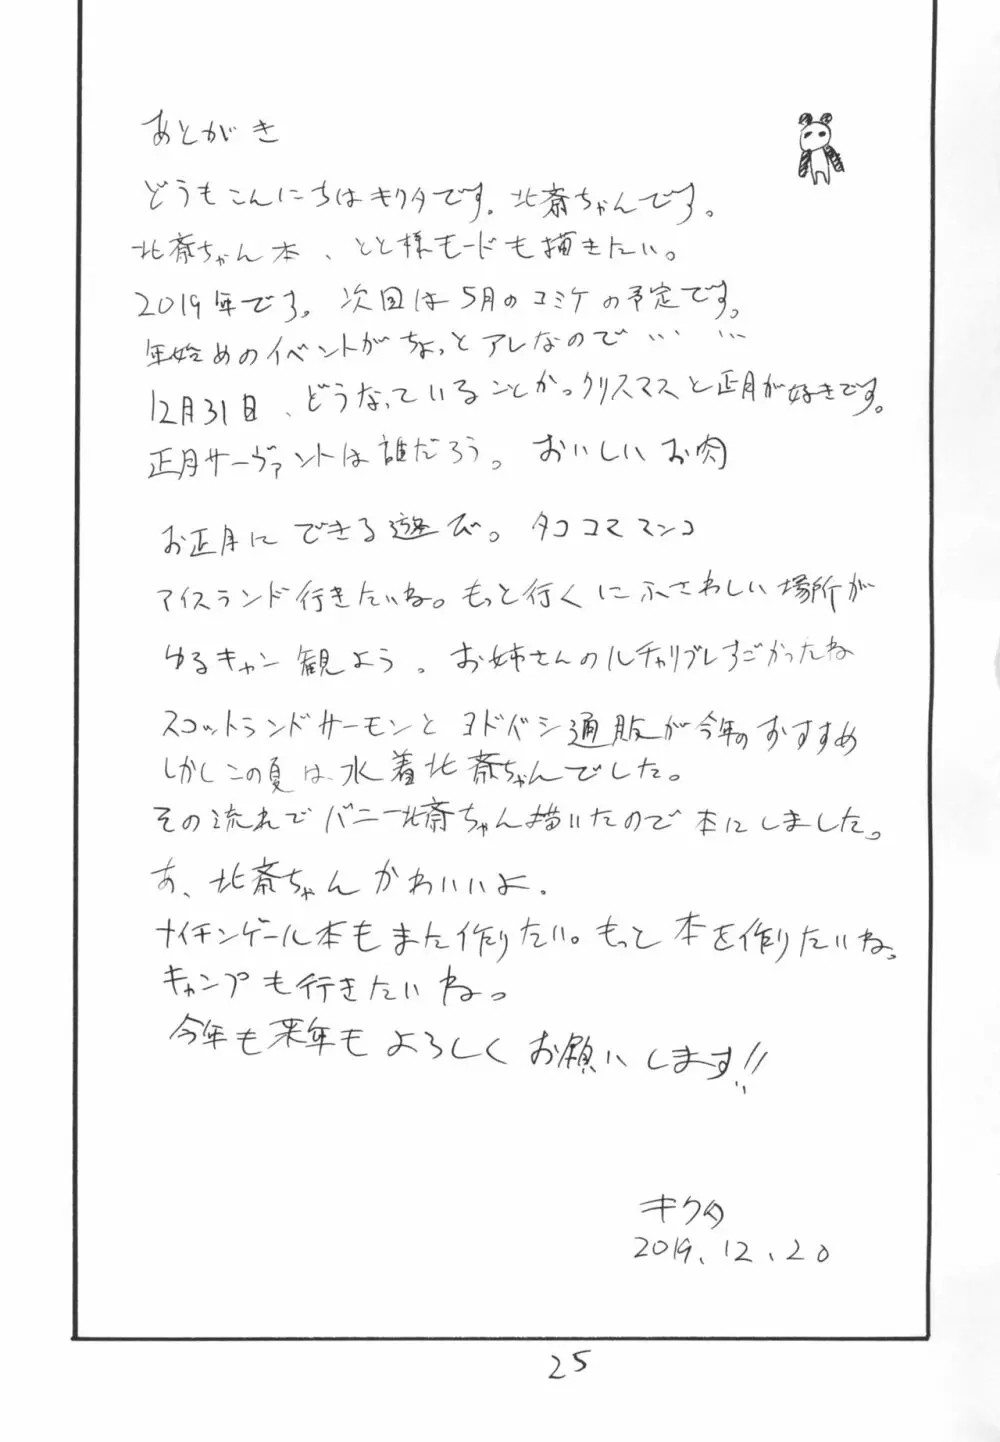 あとがき
どうもこんにちはキクタです。北斎ちゃんです。
北斎ちゃん本、とと様モードも描きたい。
2019年です。次回は5月のコミケの予定です。
年始めのイベントがちょっとアレなので……
12月31日、どうなっていることかっクリスマスと正月が好きです。
正月サーヴァントは誰だろう。おいしいお肉
お正月にできる遊び。タココママンコ
アイスランド行きたいね。もっと行くにふさわしい場所が
ゆるキャン観よう。お姉さんのルチャリブレすごかったね
スコットランドサーモンとヨドバシ通販が今年のおすすめ
しかしこの夏は水着北斎ちゃんでした。
その流れでバニー北斎ちゃん描いたので本にしました。
あ、北斎ちゃんかわいいよ。
ナイチンゲール本もまた作りたい。もっと本を作りたいね。
キャンプも行きたいね。
今年も来年もよろしくお願いします!!
キクタ
2019.12.20
25